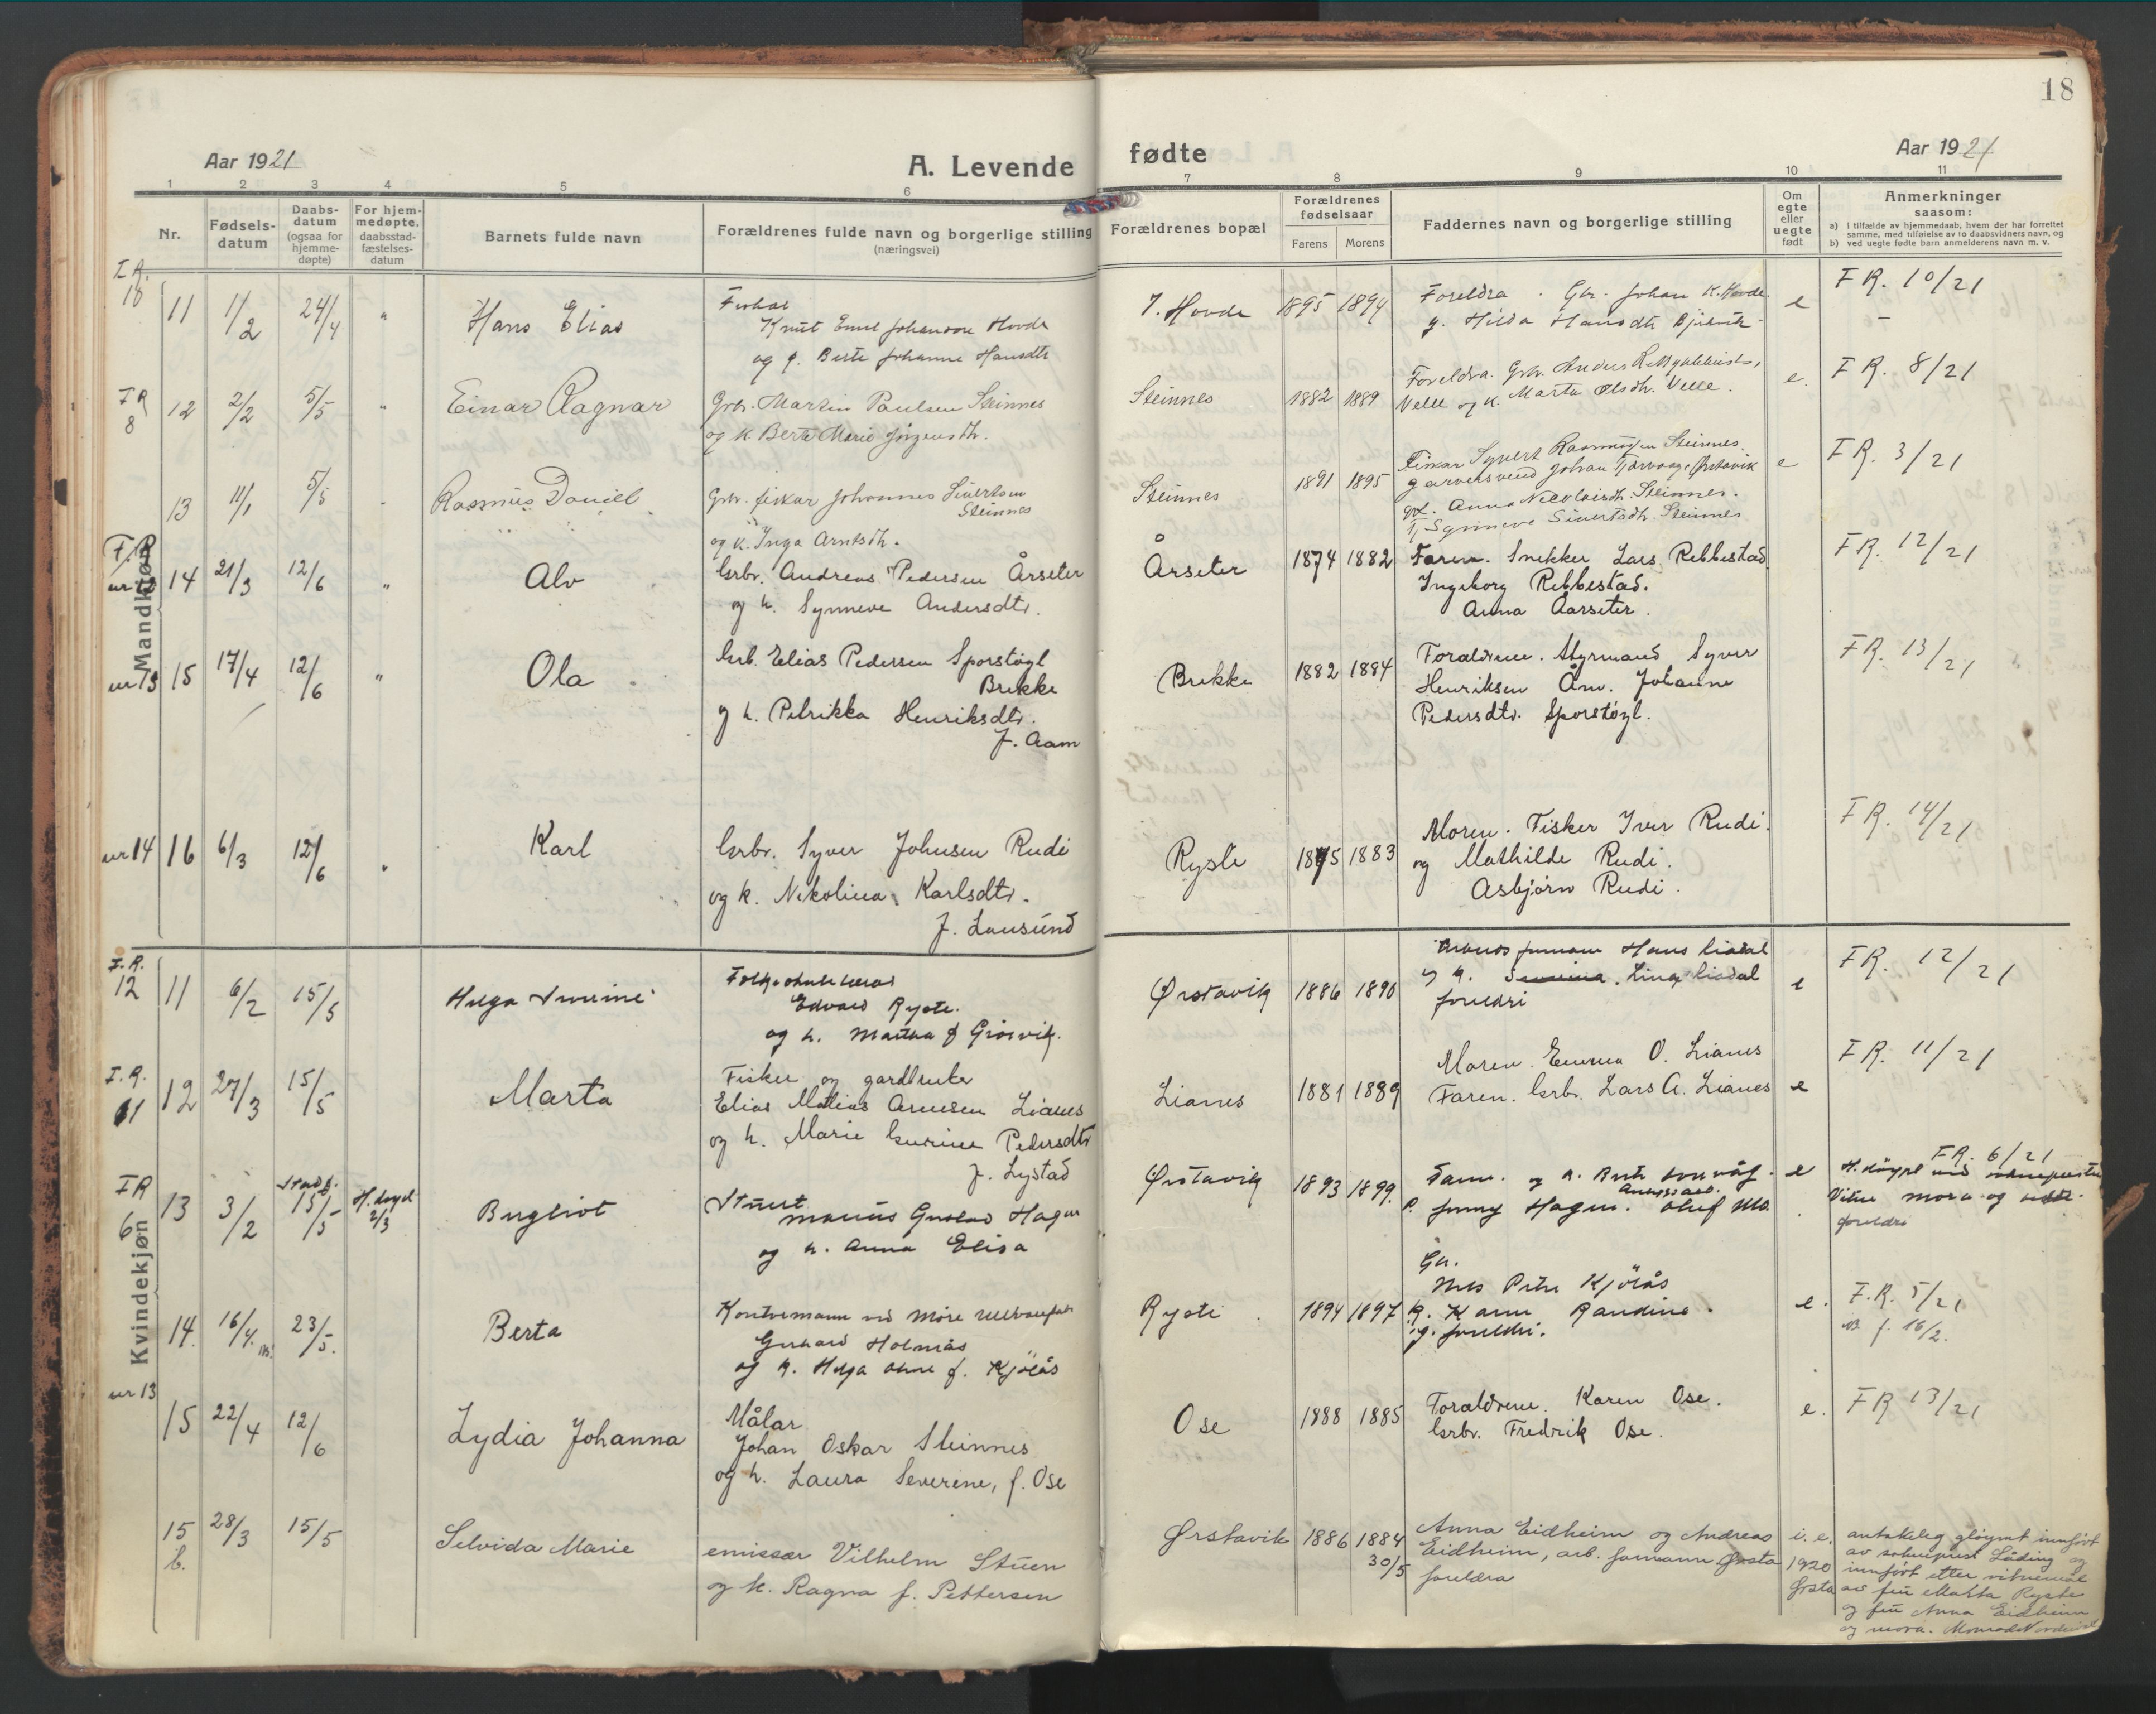 18
Aar 1921
A. Levende fødte
Aar 1921
1 2 3 4 5 6 7 8 9 10 11
Nr.
Fødsels-
datum
Daabs-
datum
(ogsaa for
hjemme-
døpte)
For hjem-
medøpte,
daabsstad-
fæstelses-
datum
Barnets fulde navn
Forældrenes fulde navn og borgerlige stilling
(næringsvei)
Forældrenes bopæl
Forældrenes
fødselsaar
Farens Morens
Faddernes navn og borgerlige stilling
Om
egte
eller
uegte
født
Anmerkninger
saasom:
a) i tilfælde av hjemmedaab, hvem der har forrettet
samme, med tilføielse av to daabsvidners navn, og
b) ved uegte fødte barn anmelderens navn m. v.
Mandkjøn
F.R. 10
11 11/2 24/4 " Hans Elias
Knut Emil Johansen Hovde
og k. Berte Johanne Hansdtr
Y. Hovde 1895 1894
Foreldra. Gbr. Johan K. Hovde
g. Hilda Hansdtr
e
FR. 10/21
FR 8
12 2/2 5/5 " Einar Ragnar
Gbr. Martin Paulsen Steinnes
og k Berte Marie Jørgensdtr.
Steinnes 1882 1889
Foreldra. Gbr. Anders
Velle og k. Marta Olsdtr. Velle.
e.
FR. 8/21
13 11/1 5/5 Rasmus Daniel
Gbr. fiskar Johannes Sivertsen
Steinnes
og k. Inga Arntsdtr.
Steinnes 1891 1895
Fiskar Syvert Rasmussen Steinnes
garversvend Johan Ørstavik
Anna Nicolaisdtr. Steinnes.
Synneve Sivertsdtr. Steinnes
e
FR. 3/21
F.R.
nr 12 14 21/3 12/6 " Alv
Grbr. Andreas Pedersen Årseter
og h. Synneve Andersdtr.
Årseter 1874 1882
Faren. Snekker Lars Rebbestad
Ingeborg Rebbestad.
Anna Aarseter.
FR. 12/21
nr 13 15 17/4 12/6 " Ola
Grb. Elias Pedersen Sporstøyl
Brekke
og h. Petrikka Henriksdtr.
f. Aam
Brekke 1882 1884
Foraldrene. Styrmand Syver
Henriksen Åm. Johanne
Pedersdtr. Sporstøyl.
FR. 13/21
nr 14 16 6/3 12/6 " Karl
Grbr. Syver Johnsen Rudi
og k. Nikolina Karlsdtr.
f. Lausund
Ryste 1875 1883
Moren. Fisker Iver Rudi.
og Mathilde Rudi.
Asbjørn Rudi.
FR. 14/21
Kvindekjøn
F.R. 12
11 6/2 15/5 Helga
Edvard Ryste.
og h. Martha f Grøsvik.
Ørstavik 1886 1890
Hans Liadal
Lina Liadal
foreldri
e
FR. 12/21
F.R. 11
12 27/3 15/5 Marta
Fisker og gardbruker
Elias Matias Arnesen Lianes
og h. Marie Gurine Pedersdtr
f. Lystad
Lianes 1881 1889
Moren. Emma O. Lianes
Faren. Grbr. Lars A. Lianes
e
FR. 11/21
FR 6
13 3/2 15/5 2/3
Marius Gustav Hagen
og h. Anna Elisa
Ørstavik 1893 1899
Jenny Hagen. Oluf Mo.
e
FR. 6/21
mora og
foreldre
14 16/4 23/5. Berta
Gerhard Holmås
og k. Helga f. Kjølås
Ryste 1894 1897
Gbr.
Nils Peter Kjølås
K. Karen Randine.
og foreldri.
e.
F.R. 5/21
f. 16/2.
nr 13
15 22/4 12/6 Lydia Johanna
Målar
Johan Oskar Steinnes
og h. Laura Severine, f. Ose
Ose 1888 1885
Foraldrene. Karen Ose.
Grbr. Fredrik Ose.
e.
FR 13/21
15 b. 28/3 15/5 Selvida Marie
emissær Vilhelm Stuen
og k. Ragna f. Pettersen
Ørstavik 1886 1884
30/5 1920
Anna Eidheim og Andreas
Eidheim, arb. formann Ørsta
foreldra
i. e.
Ørsta
antakeleg gløymt innført
av sokneprest Låding og
innført etter vitnemål
av fru Marta Ryste
og fru Anna Eidheim
og mora.